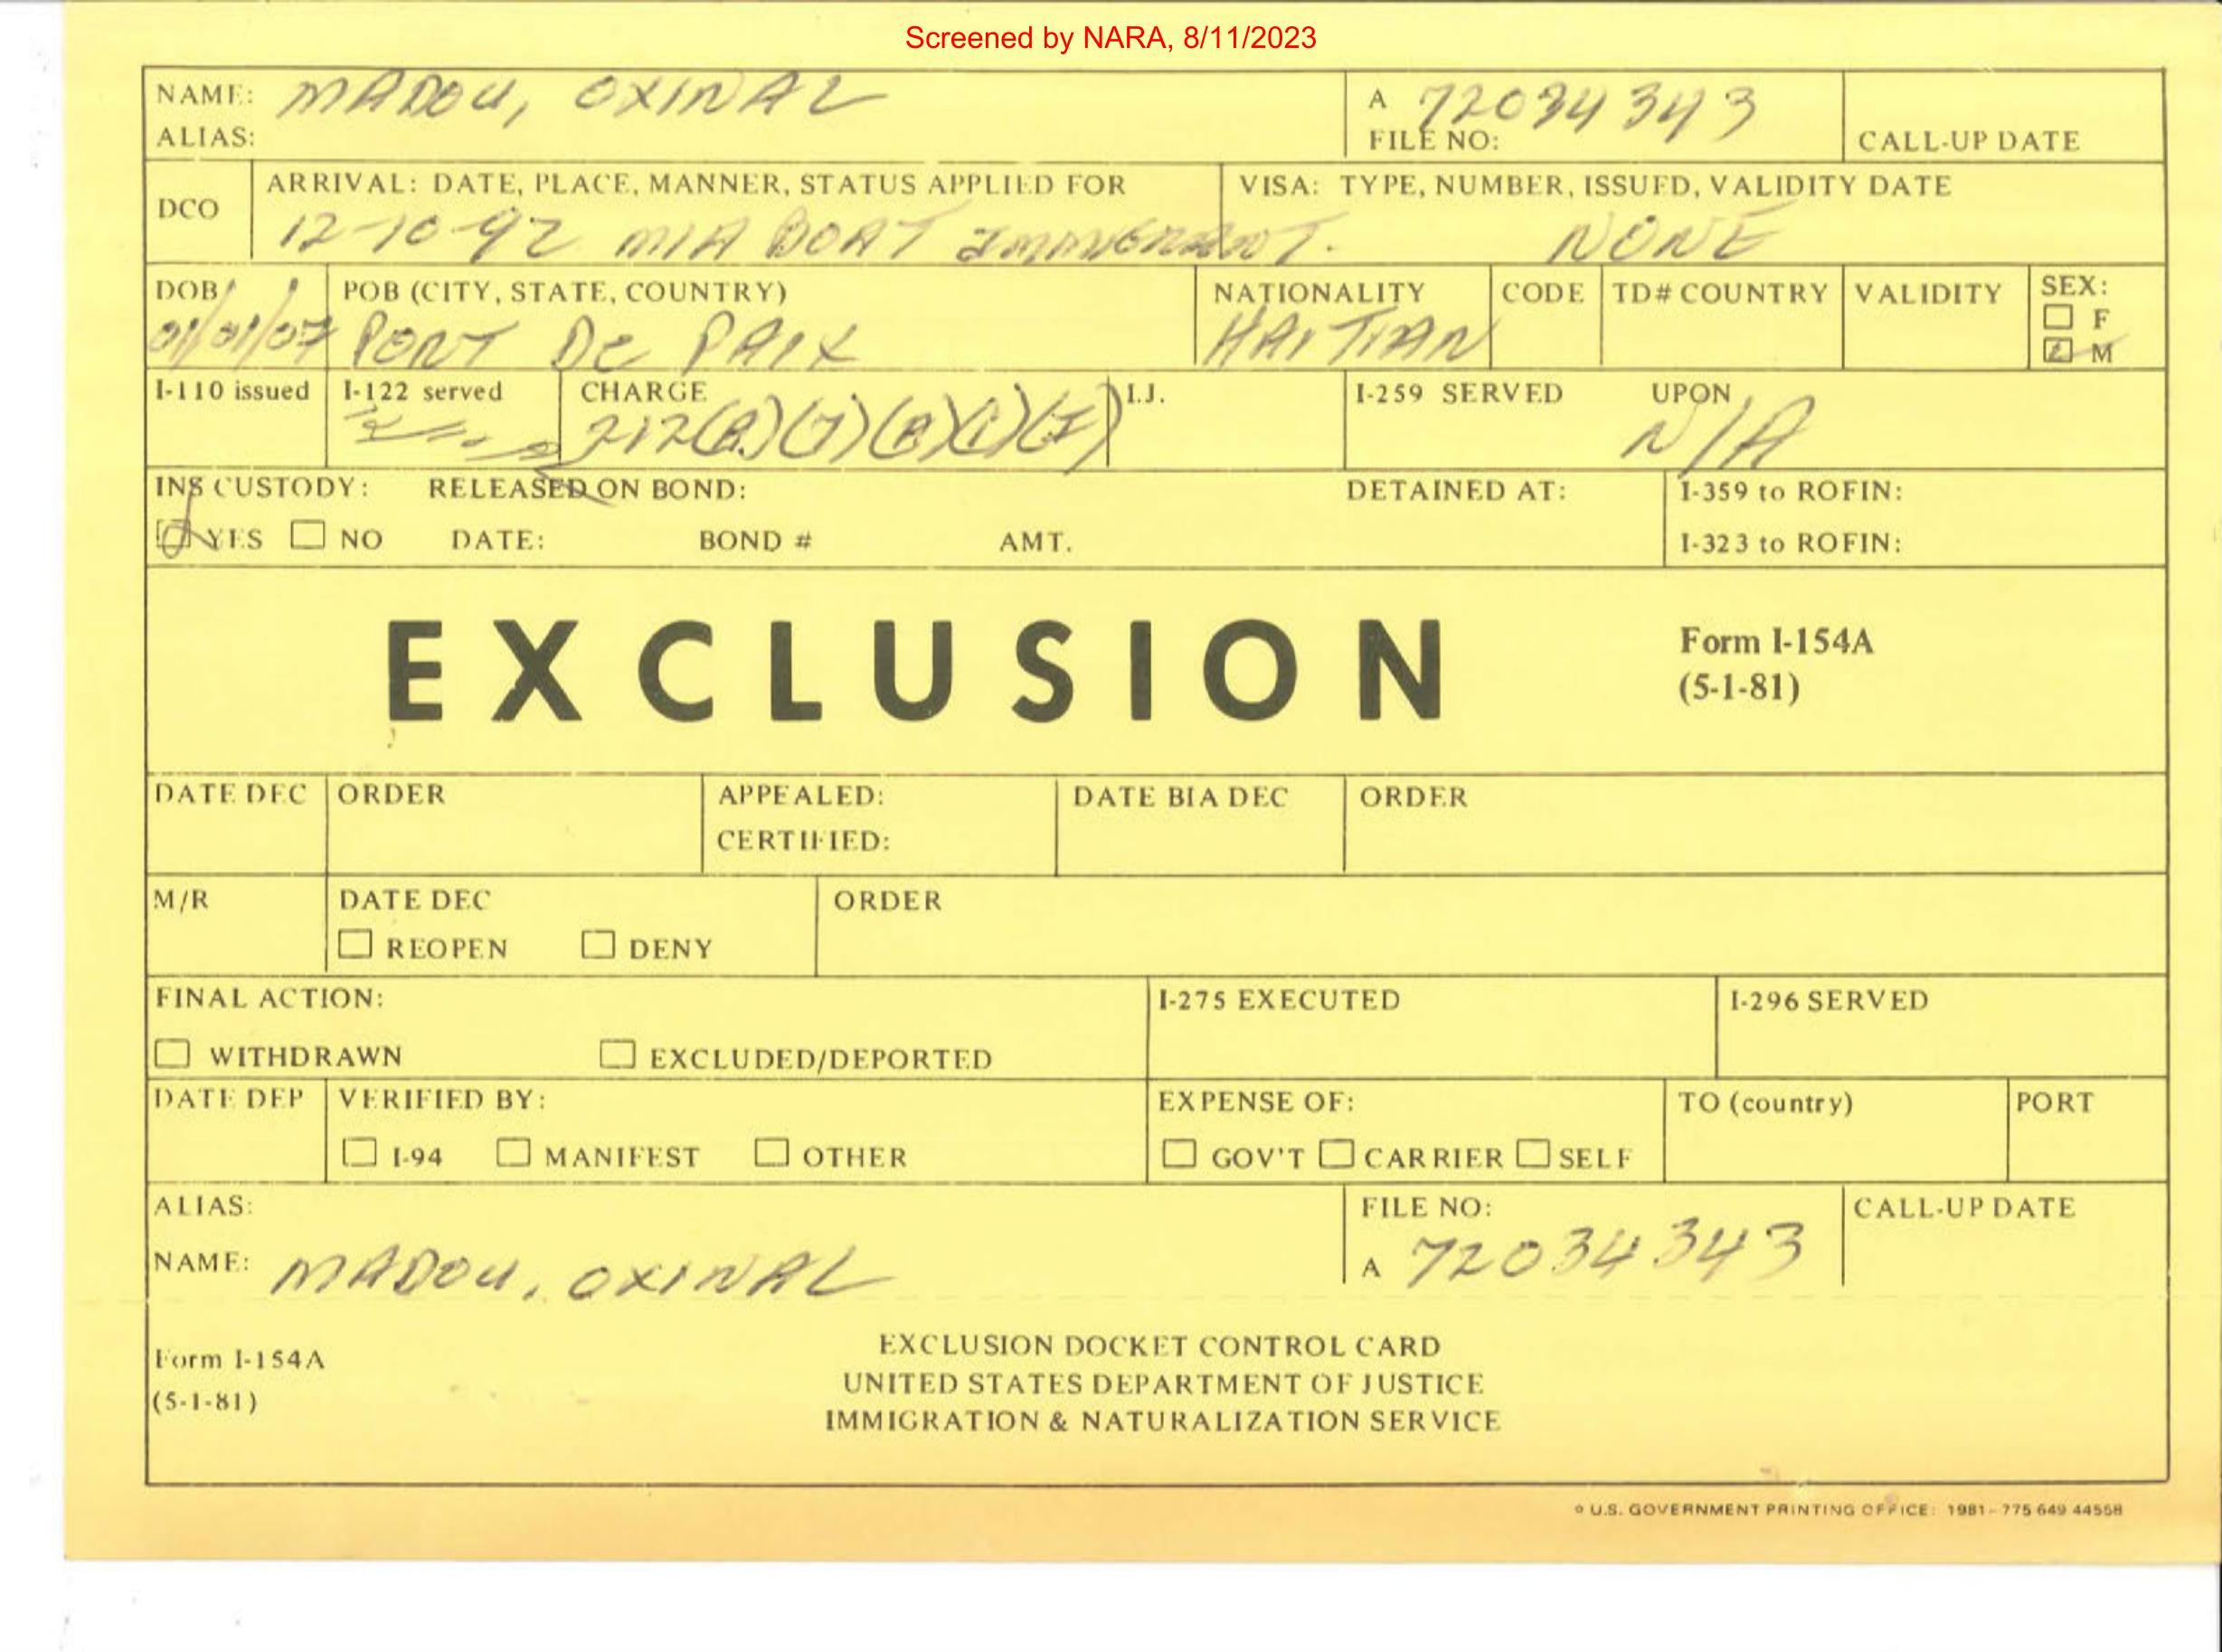 Screened by NARA, 8/11/2023
NAME: MADOU, OXINAL
ALIAS:
A 72034343
FILE NO:
CALL-UP DATE
DCO
ARRIVAL: DATE, PLACE, MANNER, STATUS APPLIED FOR
12-10-92 MIA BOAT IMMIGRANT.
VISA: TYPE, NUMBER, ISSUED, VALIDITY DATE
NONE
DOB
01/01/07
POB (CITY, STATE, COUNTRY)
PORT DE PAIX
NATIONALITY
HAITIAN
CODE
TD# COUNTRY
VALIDITY
SEX:
F
M
I-110 issued
I-122 served
CHARGE
212(A)(7)(A)(i)(I)
I.J.
I-259 SERVED UPON
N/A
INS CUSTODY: RELEASED ON BOND:
YES NO DATE: BOND # AMT.
DETAINED AT:
I-359 to ROFIN:
I-323 to ROFIN:
EXCLUSION
Form I-154A
(5-1-81)
DATE DEC
ORDER
APPEALED:
CERTIFIED:
DATE BIA DEC
ORDER
M/R
DATE DEC
REOPEN DENY
ORDER
FINAL ACTION:
WITHDRAWN EXCLUDED/DEPORTED
I-275 EXECUTED
I-296 SERVED
DATE DEP
VERIFIED BY:
I-94 MANIFEST OTHER
EXPENSE OF:
GOV'T CARRIER SELF
TO (country)
PORT
ALIAS:
NAME: MADOU, OXINAL
FILE NO:
A 72034343
CALL-UP DATE
Form I-154A
(5-1-81)
EXCLUSION DOCKET CONTROL CARD
UNITED STATES DEPARTMENT OF JUSTICE
IMMIGRATION & NATURALIZATION SERVICE
U.S. GOVERNMENT PRINTING OFFICE: 1981-775 649 44558